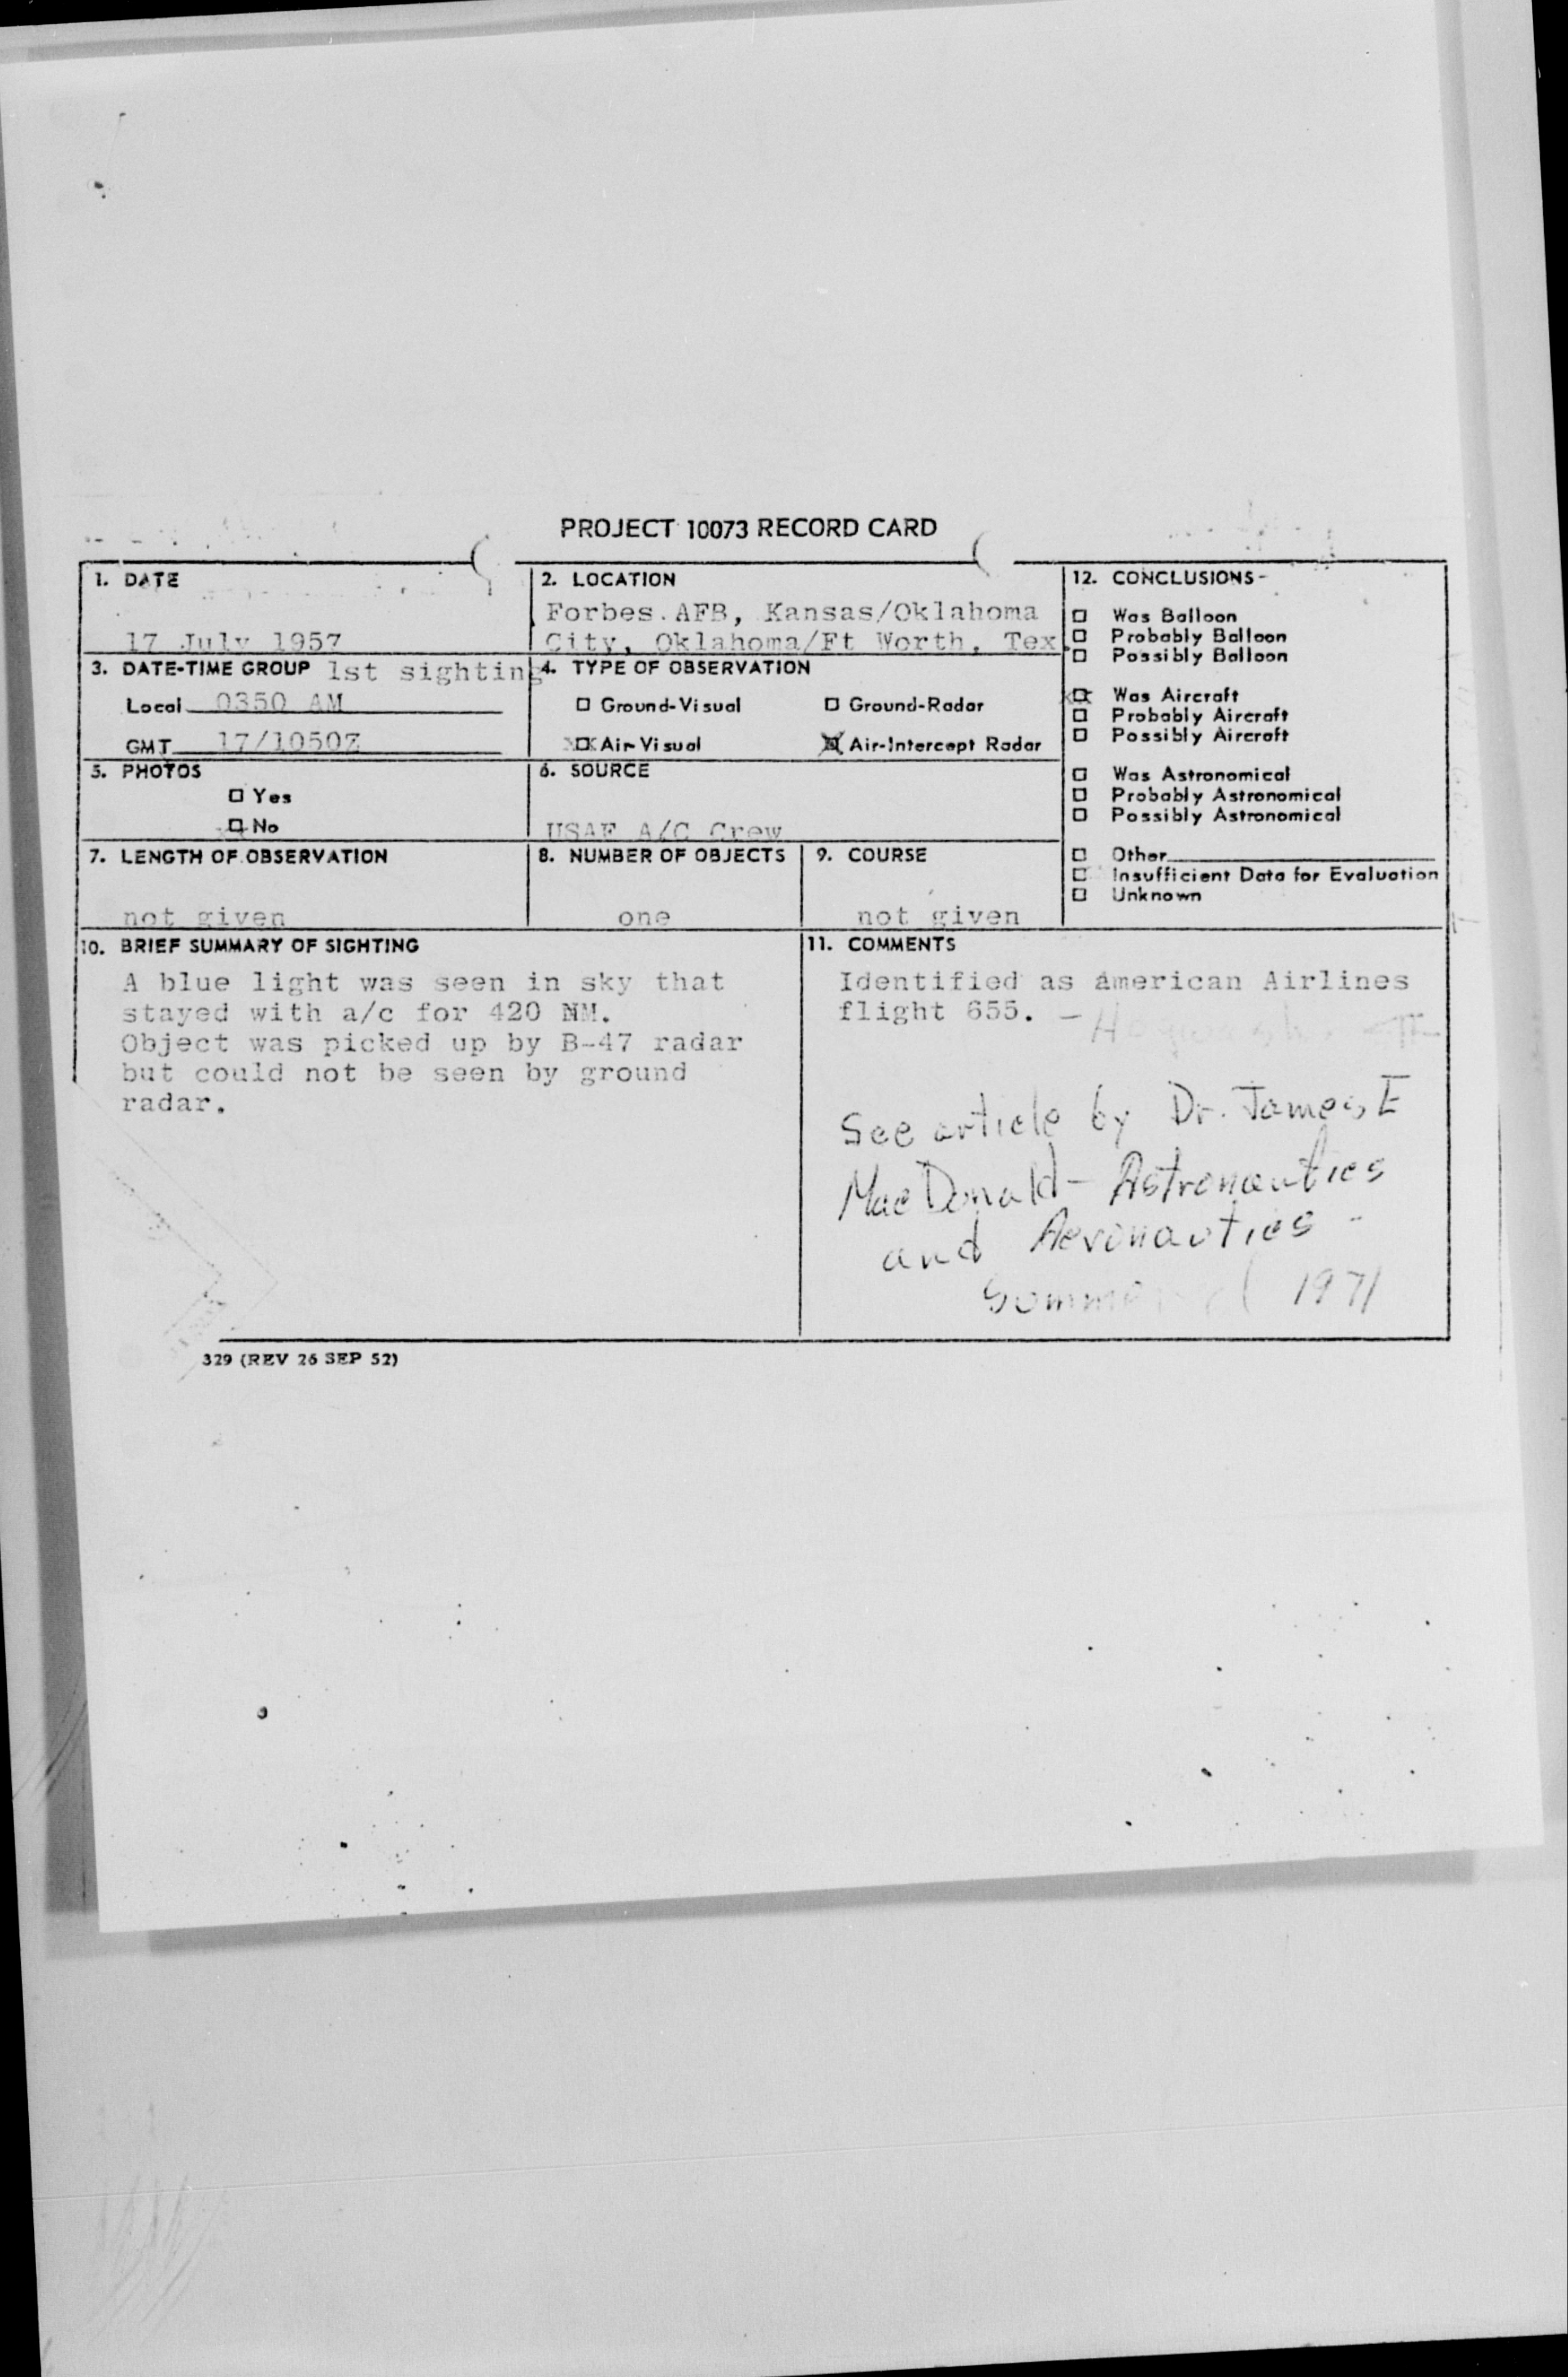 PROJECT 10073 RECORD CARD
1. DATE
17 July 1957
2. LOCATION
Forbes AFB, Kansas/Oklahoma
City, Oklahoma/Ft Worth, Tex.
3. DATE-TIME GROUP 1st sighting
Local 0350 AM
GMT 17/1050Z
4. TYPE OF OBSERVATION
□ Ground-Visual □ Ground-Radar
XX Air-Visual X Air-Intercept Radar
5. PHOTOS
□ Yes
XX No
6. SOURCE
USAF A/C Crew
7. LENGTH OF OBSERVATION
not given
8. NUMBER OF OBJECTS
one
9. COURSE
not given
12. CONCLUSIONS
□ Was Balloon
□ Probably Balloon
□ Possibly Balloon
XX Was Aircraft
□ Probably Aircraft
□ Possibly Aircraft
□ Was Astronomical
□ Probably Astronomical
□ Possibly Astronomical
□ Other
□ Insufficient Data for Evaluation
□ Unknown
10. BRIEF SUMMARY OF SIGHTING
A blue light was seen in sky that
stayed with a/c for 420 NM.
Object was picked up by B-47 radar
but could not be seen by ground
radar.
11. COMMENTS
Identified as American Airlines
flight 655. –
See article by Dr. James E
MacDonald - Astronautics
and Aeronautics -
1971
329 (REV 26 SEP 52)